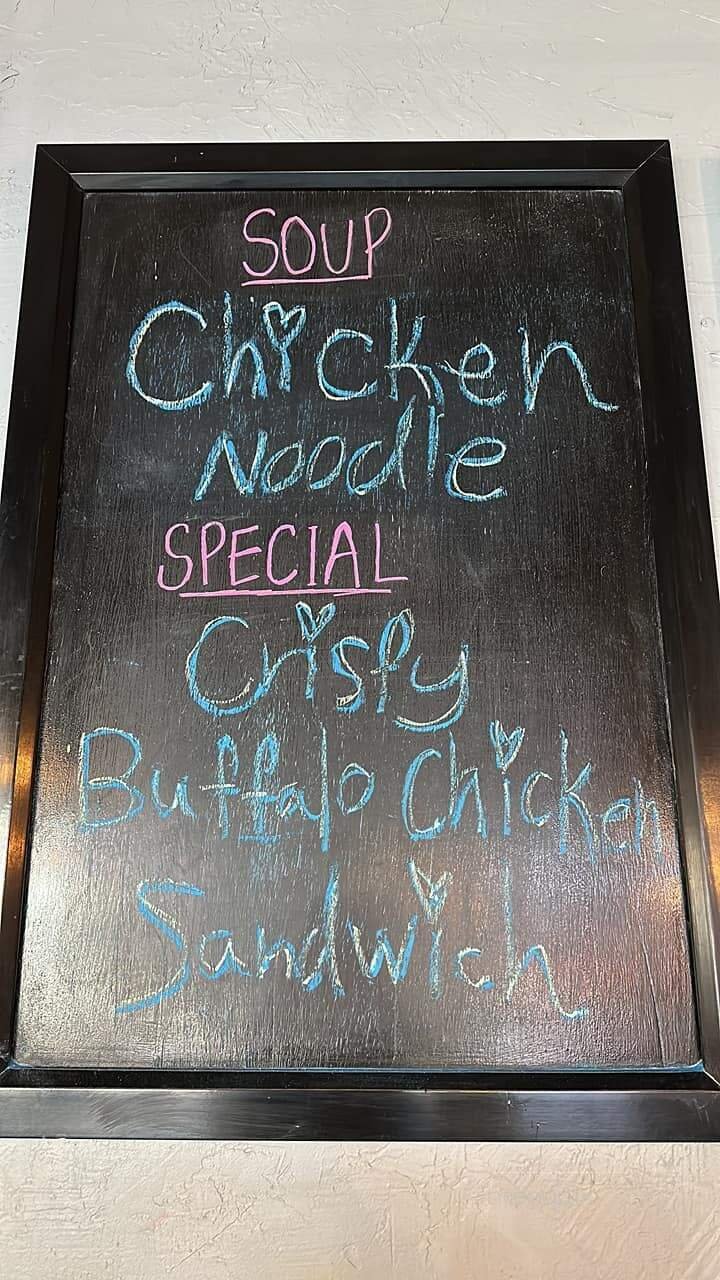 SOUP
Chicken
Noodle
SPECIAL
Crispy
Buffalo Chicken
Sandwich